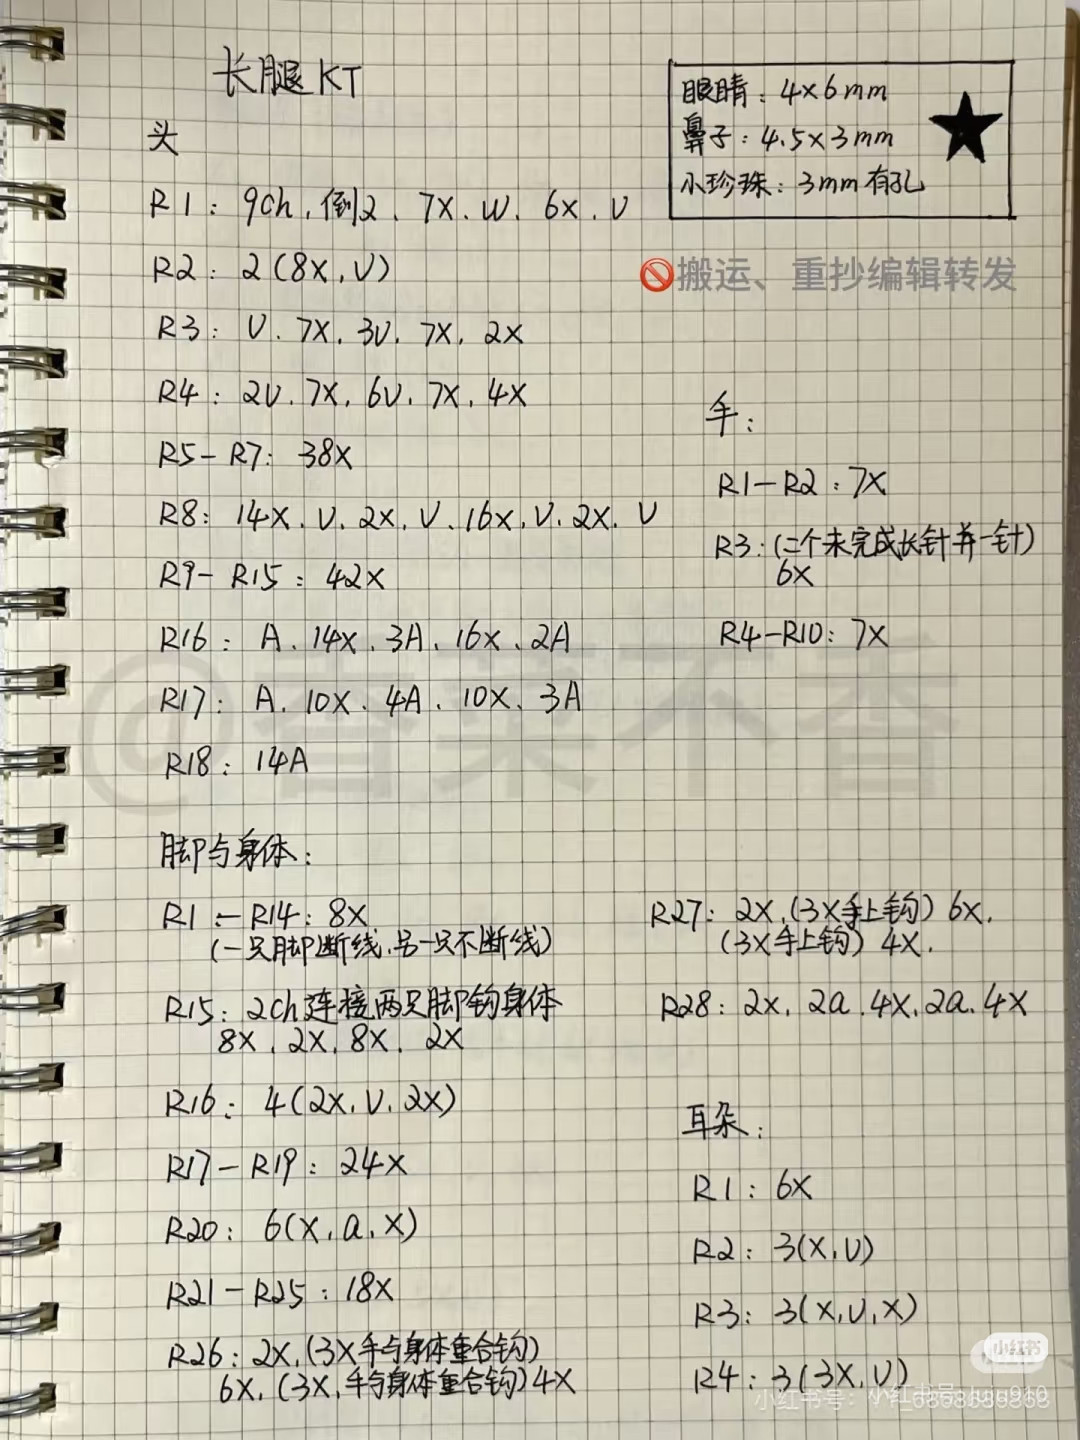 长腿KT
眼睛：4×6mm
鼻子：4.5×3mm
小珍珠：3mm有孔
头
R1：9ch，倒2、7X、W、6X、V
🚫搬运、重抄编辑转发
R2：2(8X，V)
R3：V、7X，3V，7X，2X
R4：2V、7X，6V，7X，4X
R5-R7：38X
R8：14X、V、2X，V、16X，V、2X、V
R9-R15：42X
R16：A、14X、3A、16X、2A
R17：A、10X、4A、10X、3A
R18：14A
手：
R1-R2：7X
R3：(二个未完成长针并一针)
6X
R4-R10：7X
@香菜不香
脚与身体：
R1-R14：8X
(一只脚断线，另一只不断线)
R15：2ch连接两只脚钩身体
8X，2X，8X，2X
R16：4(2X，V，2X)
R17-R19：24X
R20：6(X，a，X)
R21-R25：18X
R26：2X，(3X手与身体重合钩)
6X，(3X，手与身体重合钩)4X
R27：2X，(3X手上钩)6X，
(3X手上钩)4X，
R28：2X，2a，4X，2a，4X
耳朵：
R1：6X
R2：3(X，V)
R3：3(X，V，X)
R4：3(3X，V)
小红书
小红书号：